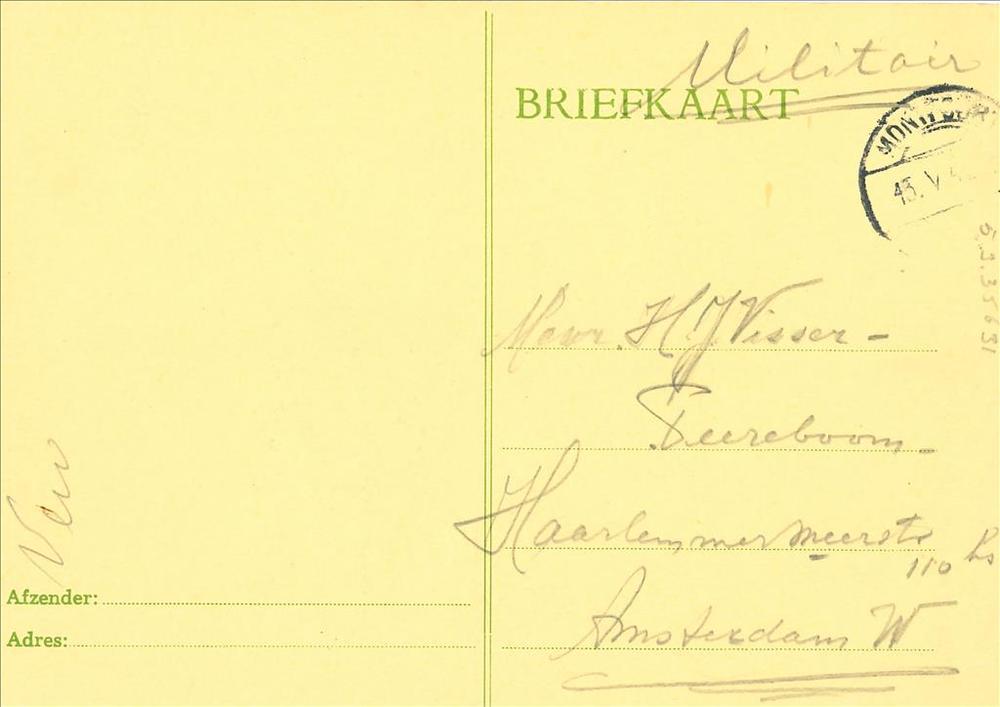 Militair
BRIEFKAART
13. V. 4
Mevr. H. J. Visser -
Peereboom -
Haarlemmermeerstr
110 hs
Amsterdam W
Afzender:
Adres: